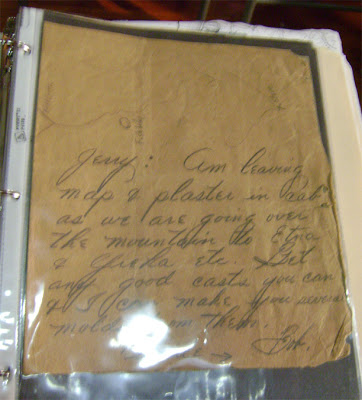 Jerry: Am leaving
map & plaster in "cab"
as we are going over
the mountain to Etna
& Yreka etc. Get
any good casts you can
& I can make you several
molds from them.